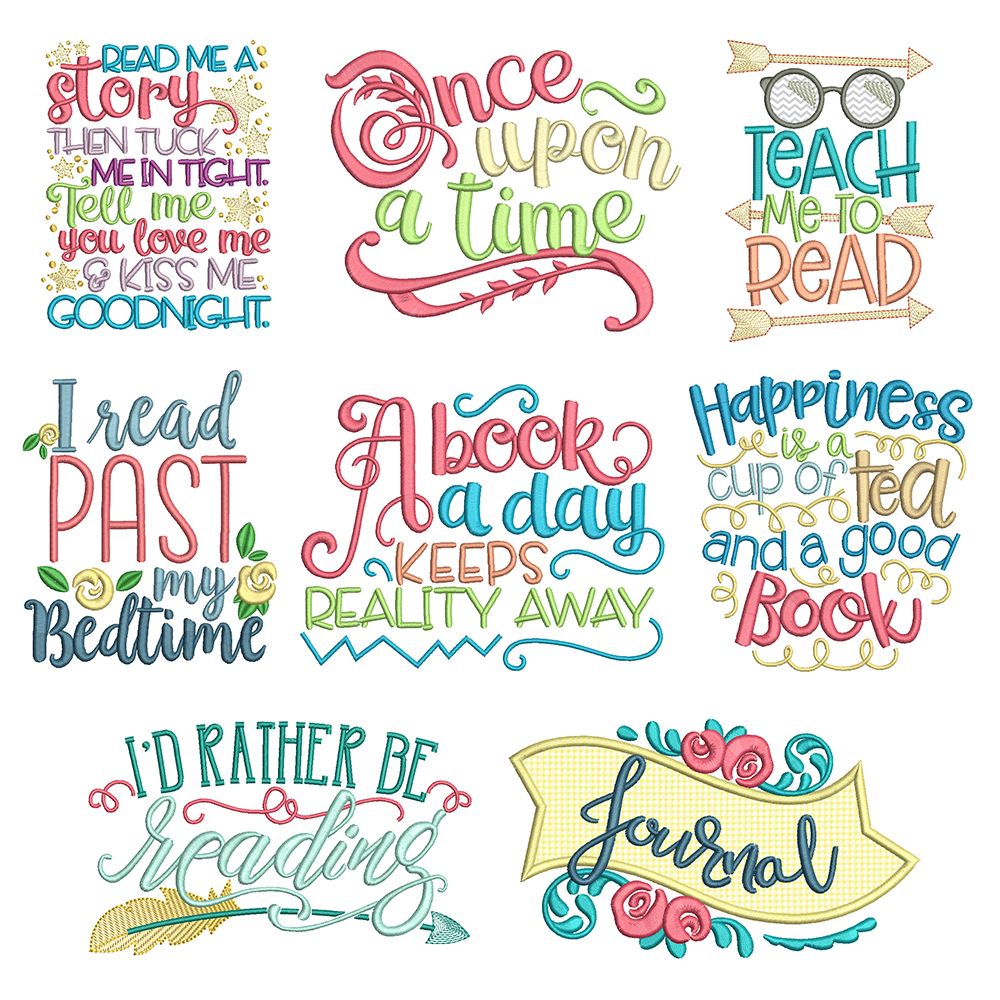 READ ME A
story
THEN TUCK
ME IN TIGHT.
Tell me
you love me
& KISS ME
GOODNIGHT.
Once
upon
a time
TEACH
ME TO
READ
I read
PAST
my
Bedtime
A book
a day
KEEPS
REALITY AWAY
Happiness
is a
cup of tea
and a good
Book
I'D RATHER BE
reading
Journal